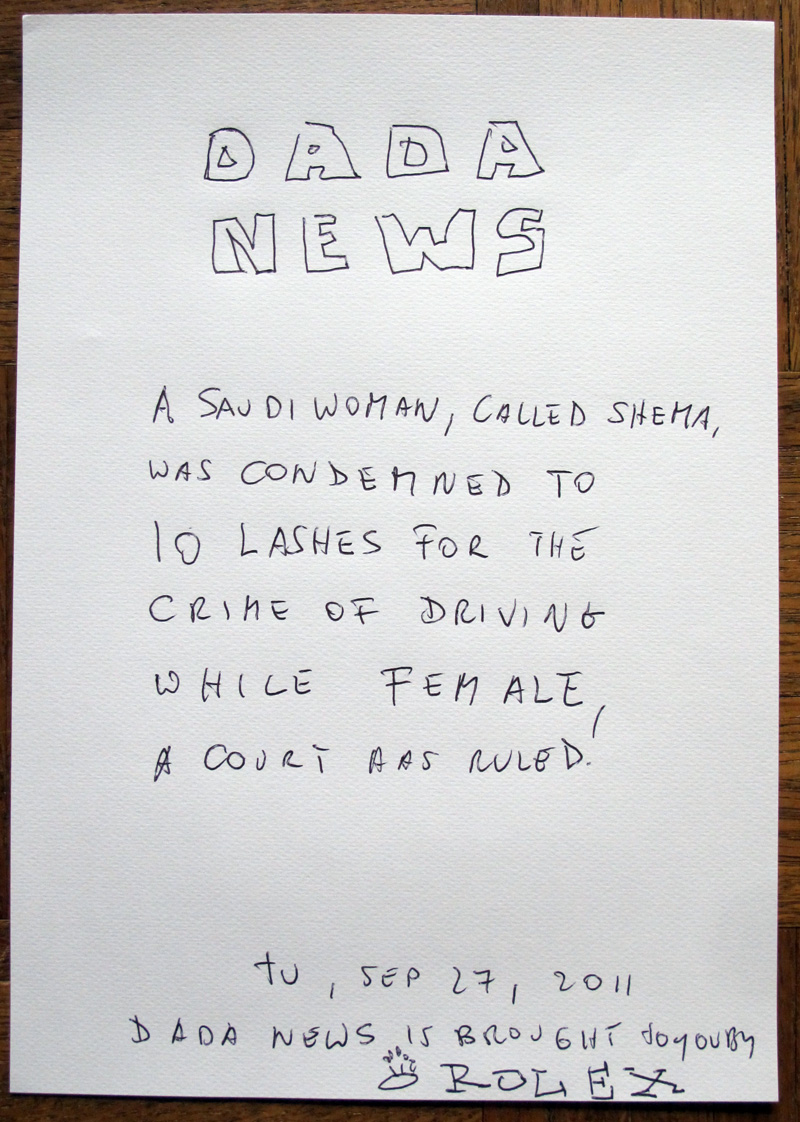 DADA
NEWS
A SAUDI WOMAN, CALLED SHEMA,
WAS CONDEMNED TO
10 LASHES FOR THE
CRIME OF DRIVING
WHILE FEMALE,
A COURT HAS RULED!
TU, SEP 27, 2011
DADA NEWS IS BROUGHT to YOU BY
ROLEX